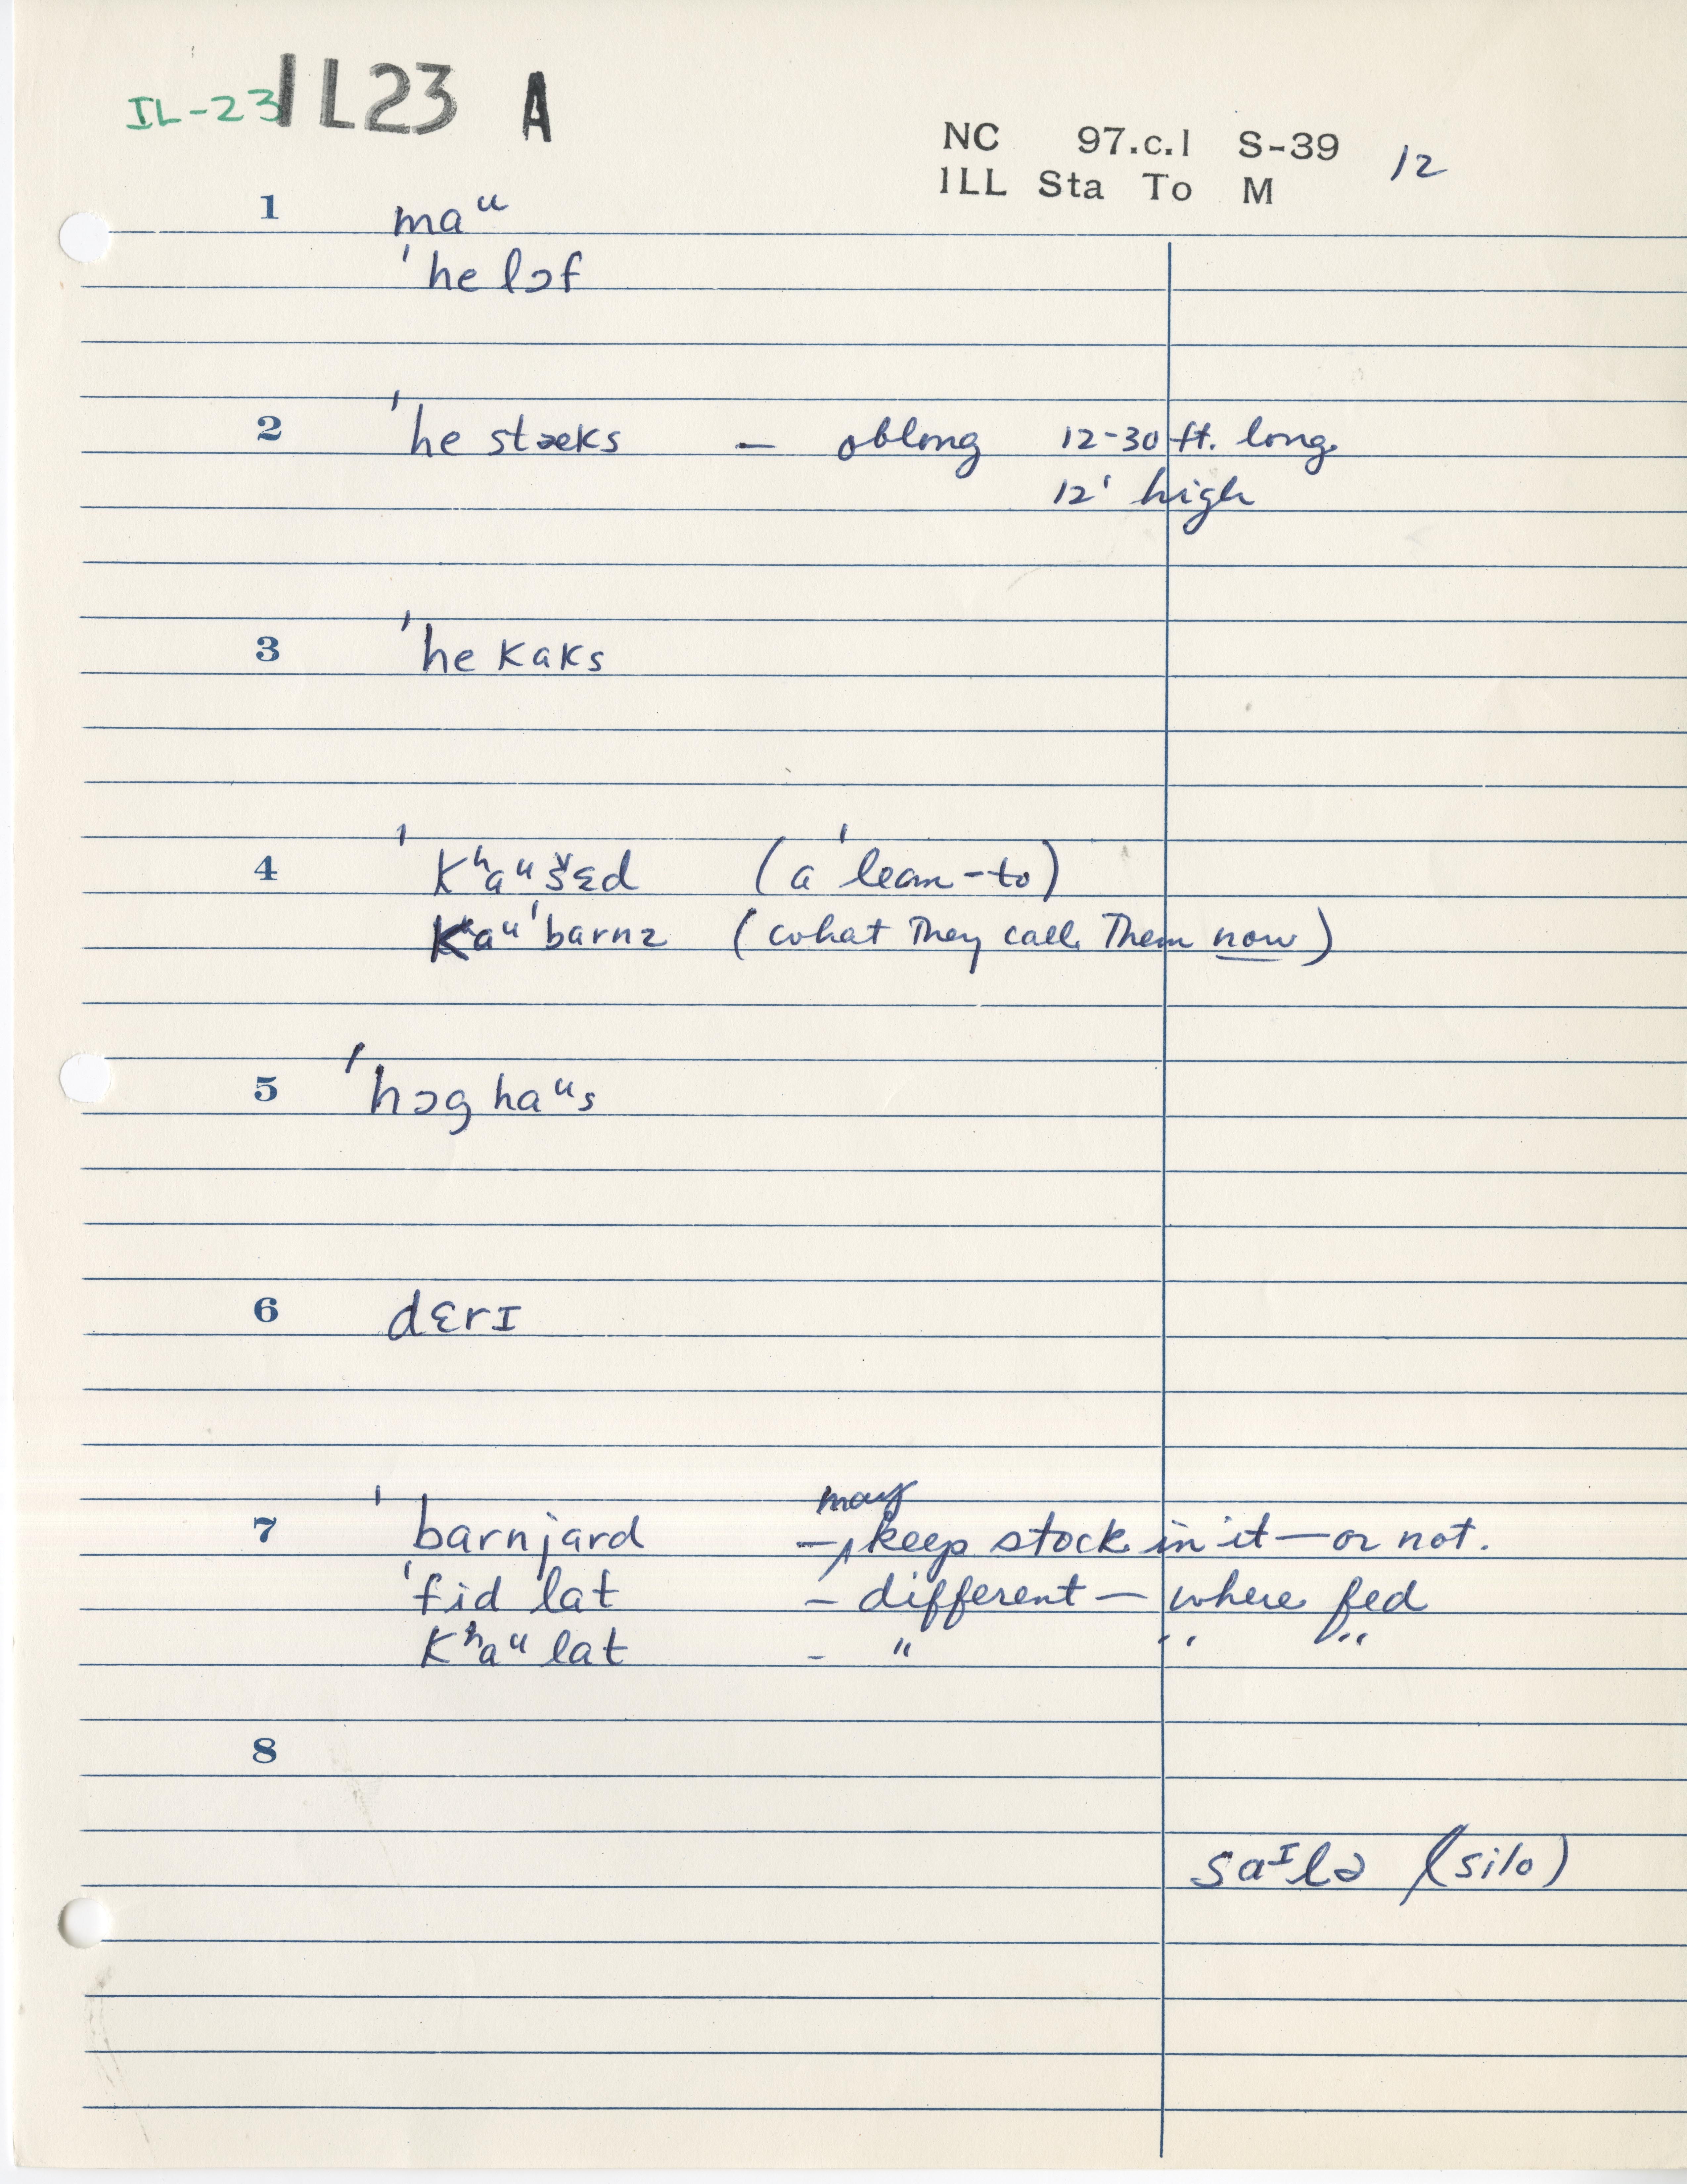 IL-23 IL23 A
NC 97.c.1 S-39 12
ILL Sta To M
1 maᵘ
ˈhe lɔf
2 ˈhe stæks — oblong 12-30 ft. long
12' high
3 ˈhe kaks
4 ˈkʰaᵘ šɛd (a ˈlean-to)
kʰaᵘ ˈbarnz (what they call them now)
5 ˈhɔg haᵘs
6 dɛrɪ
7 ˈbarnjard — may keep stock in it — or not.
ˈfid lat — different — where fed
kʰaᵘ lat - " " "
8
saᶦlə (silo)